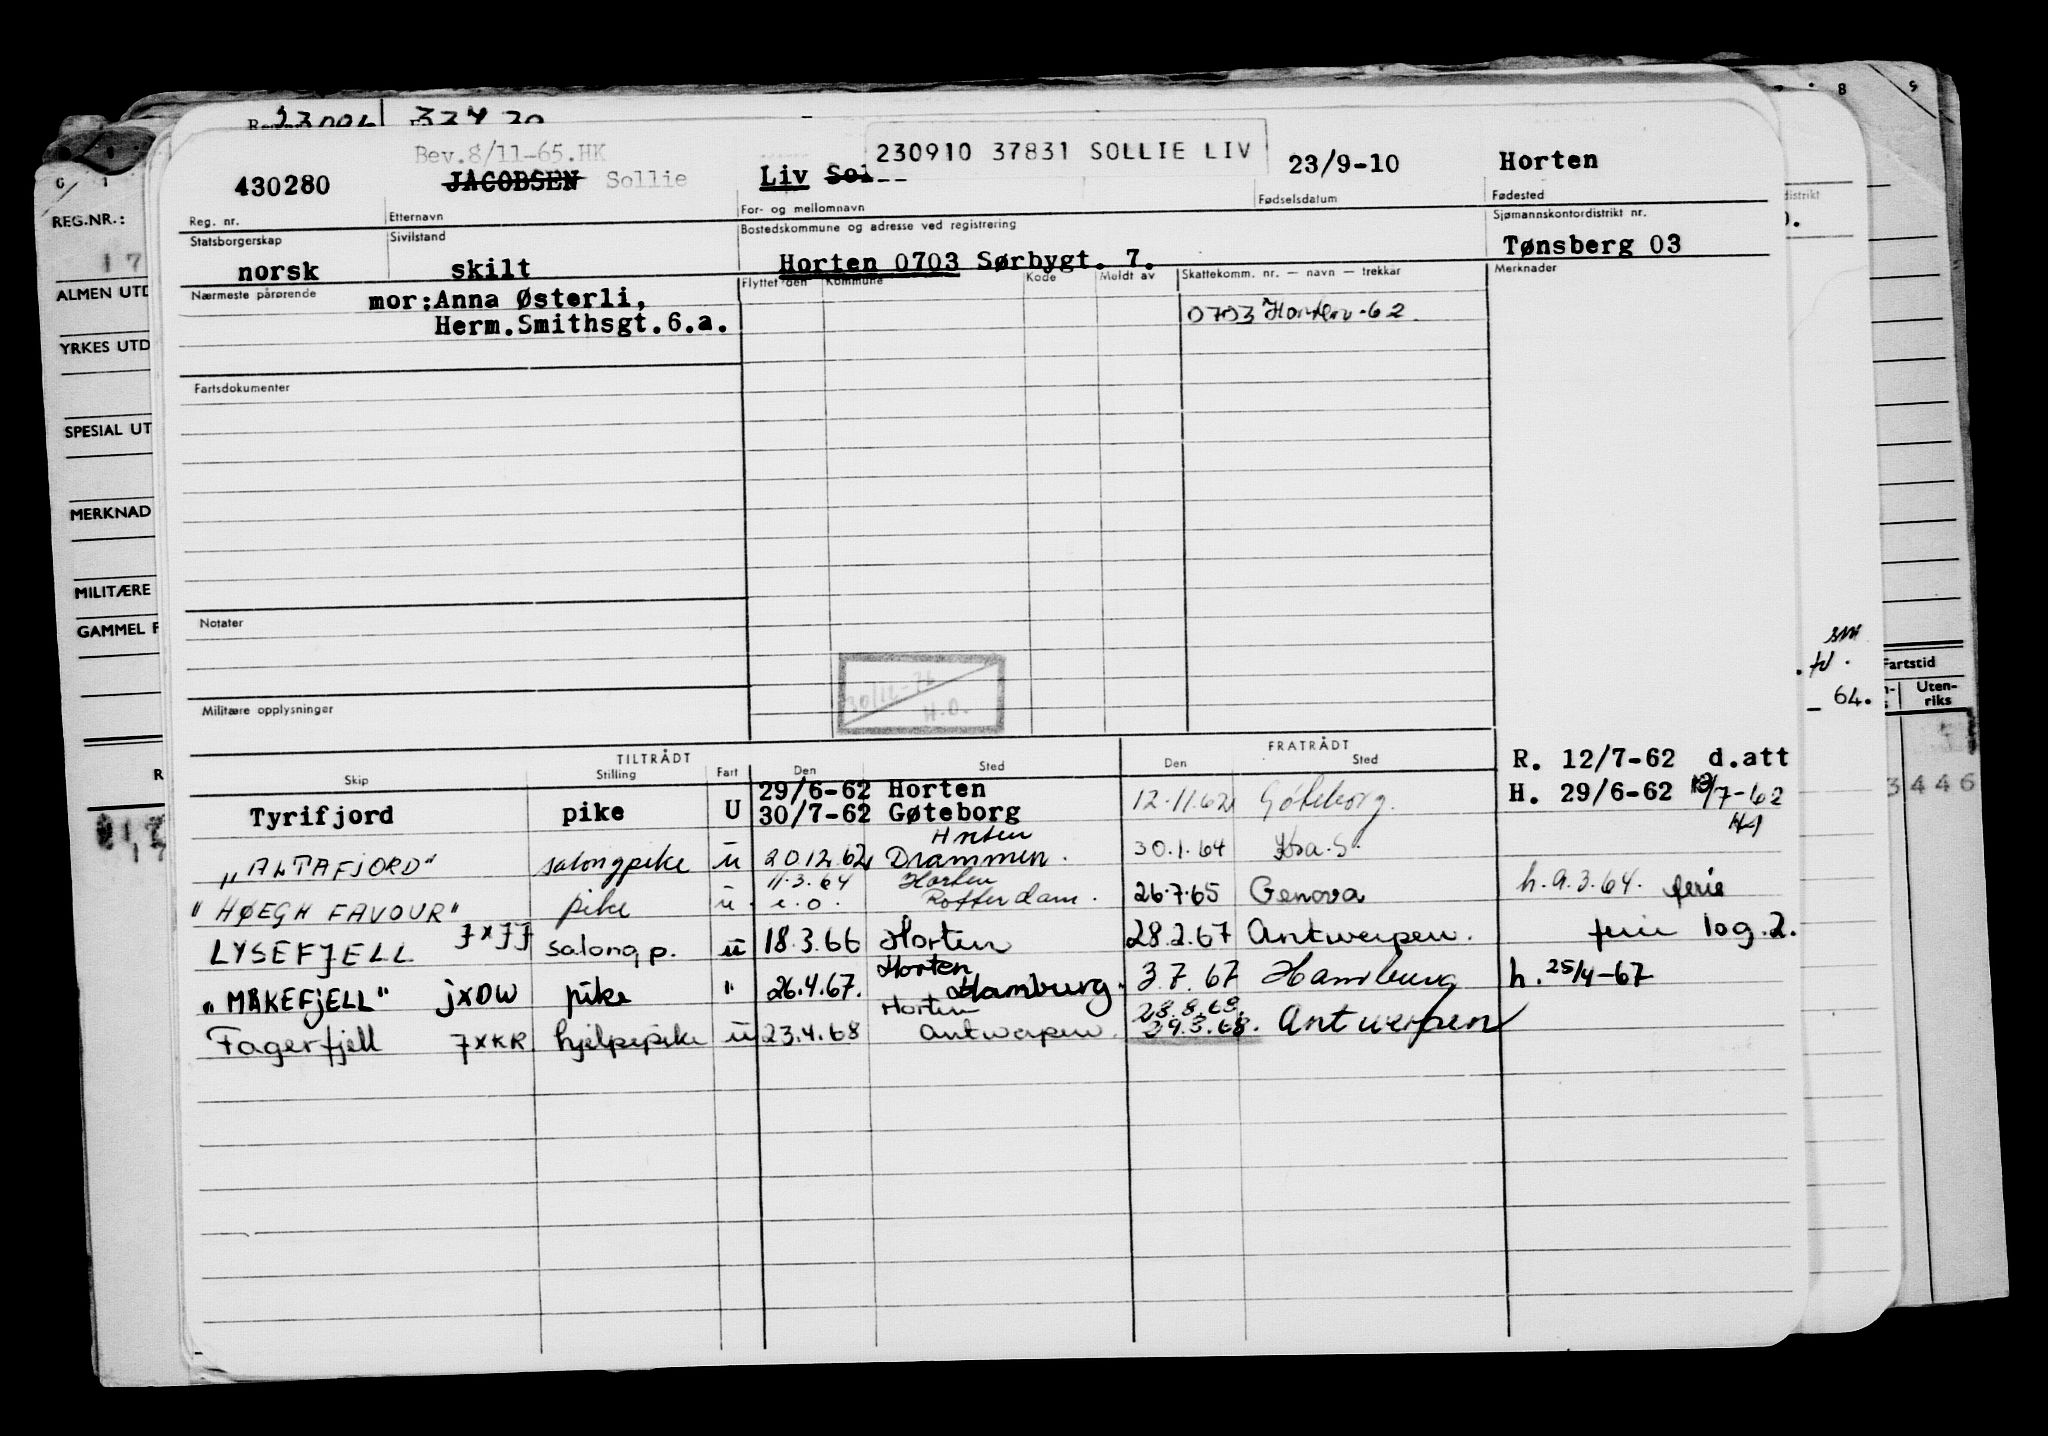 Bev.8/11-65.HK
230910 37831 SOLLIE LIV
430280 JACOBSEN Sollie Liv Sol 23/9-10 Horten
Reg. nr. Etternavn For- og mellomnavn Fødselsdatum Fødested
Statsborgerskap Sivilstand Bostedskommune og adresse ved registrering Sjømannskontordistrikt nr.
norsk skilt Horten 0703 Sørbygt. 7. Tønsberg 03
Nærmeste pårørende Flyttet den Kommune Kode Meldt av Skattekomm. nr. — navn — trekkår Merknader
mor:Anna Østerli,
Herm.Smithsgt.6.a.
0703 Horten-62
Fartsdokumenter
Notater
30/12-76
H.O.
Militære opplysninger
TILTRÅDT FRATRÅDT
Skip Stilling Fart Den Sted Den Sted
R. 12/7-62 d.att
29/6-62 Horten
Tyrifjord pike U 30/7-62 Gøteborg 12.11.62 Göteborg. H. 29/6-62 13/7-62
Horten
"ALTAFJORD" salongpike u 20.12.62 Drammen. 30.1.64 Kra.S.
11.3.64 Horten
"HØEGH FAVOUR" pike u. i.o. Rotterdam. 26.7.65 Genova h.9.3.64. ferie
LYSEFJELL JXJJ salong p. u 18.3.66 Horten 28.2.67 Antwerpen. ferie log.2.
Horten
"MÅKEFJELL" JXDW pike " 26.4.67. Hamburg. 3.7.67 Hamburg h. 25/4-67
Horten 28.8.68.
Fagerfjell JXKR hjelpepike u 23.4.68 Antwerpen. 29.3.68. Antwerpen
REG.NR.:
ALMEN UTD
YRKES UTD
SPESIAL UT
MERKNAD
MILITÆRE
GAMMEL F
distrikt
64.
Fartstid
Uten-
riks
3446